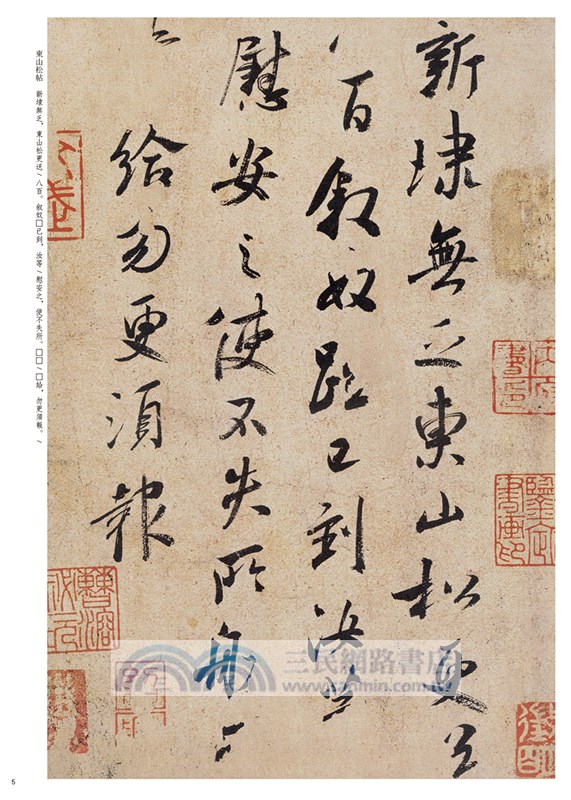 新埭無乏東山松更送
八百叙奴已到汝等
慰安之使不失所
給勿更須報
東山松帖　新埭無乏，東山松更送/八百。叙奴□已到，汝等/慰安之，使不失所。□□/□給，勿更須報。/
三民網路書店
www.sanmin.com.tw
5